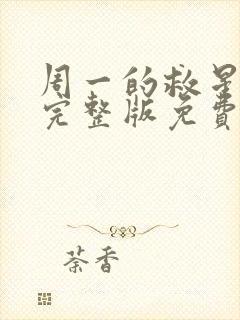 周一的救星
完整版免費
荼香